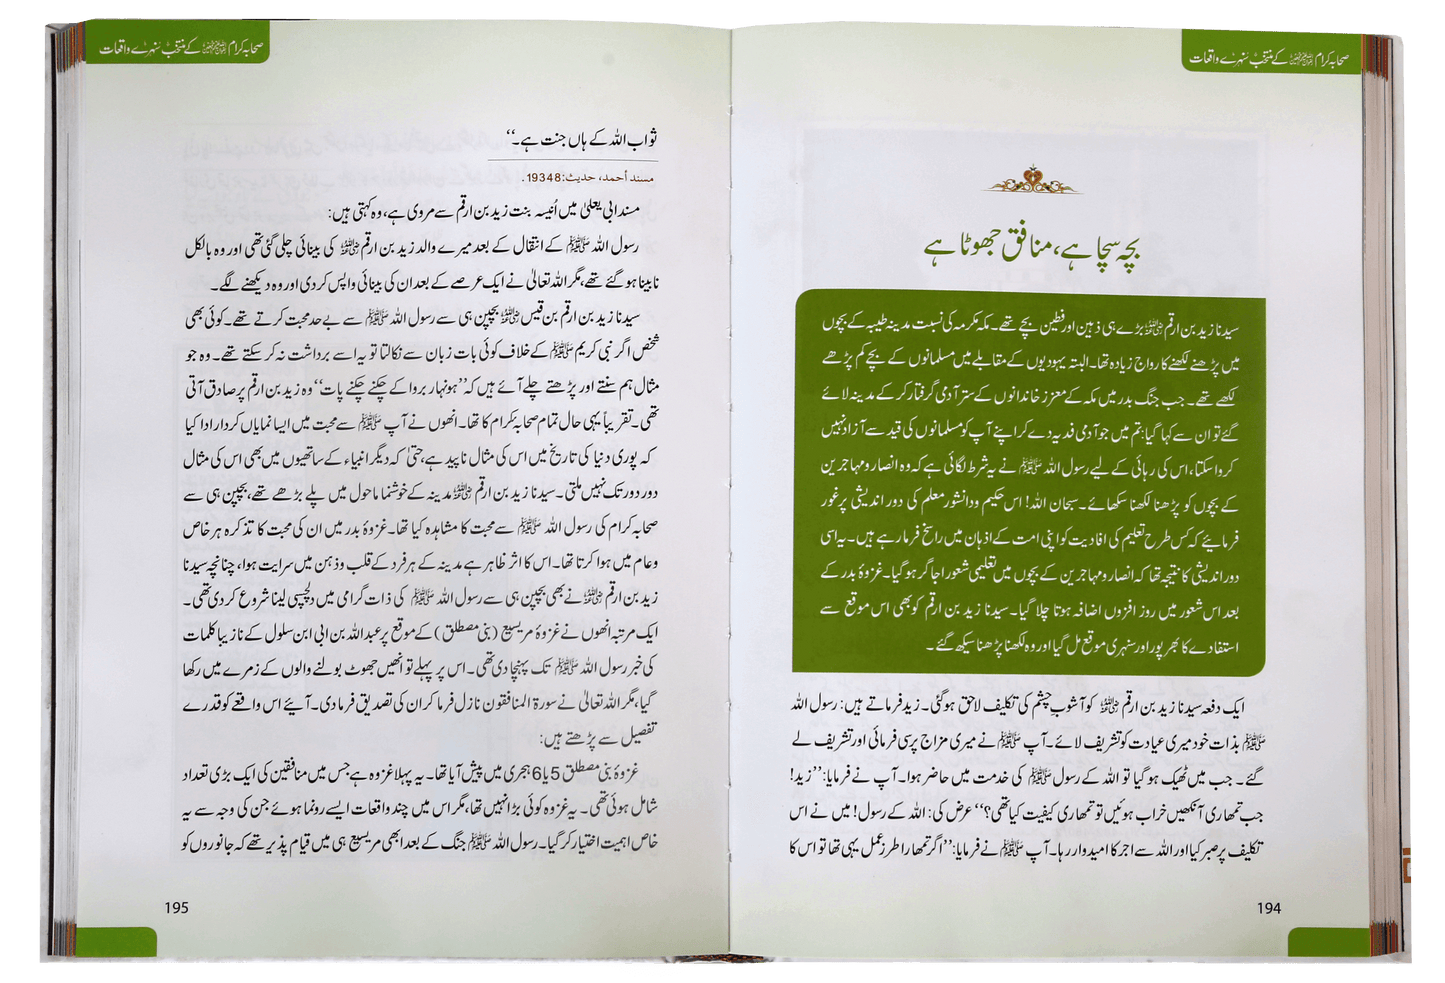 صحابہ کرام رضی اللہ عنہم کے منتخب سنہرے واقعات
بچہ سچا ہے، منافق جھوٹا ہے
سیدنا زید بن ارقم رضی اللہ عنہ بڑے ہی ذہین اور فطین بچے تھے۔ مکہ مکرمہ کی نسبت مدینہ طیبہ کے بچوں
میں پڑھنے لکھنے کا رواج زیادہ تھا۔ البتہ یہودیوں کے مقابلے میں مسلمانوں کے بچے کم پڑھے
لکھے تھے۔ جب جنگ بدر میں مکہ کے معزز خاندانوں کے ستر آدمی گرفتار کر کے مدینہ لائے
گئے تو ان سے کہا گیا: تم میں جو آدمی فدیہ دے کر اپنے آپ کو مسلمانوں کی قید سے آزاد نہیں
کروا سکتا، اس کی رہائی کے لیے رسول اللہ ﷺ نے یہ شرط لگائی ہے کہ وہ انصار و مہاجرین
کے بچوں کو پڑھنا لکھنا سکھائے۔ سبحان اللہ! اس حکیم و دانشور معلم کی دور اندیشی پر غور
فرمایئے کہ کس طرح تعلیم کی افادیت کو اپنی امت کے اذہان میں راسخ فرما رہے ہیں۔ یہ اسی
دور اندیشی کا نتیجہ تھا کہ انصار و مہاجرین کے بچوں میں تعلیمی شعور اجاگر ہو گیا۔ غزوۂ بدر کے
بعد اس شعور میں روز افزوں اضافہ ہوتا چلا گیا۔ سیدنا زید بن ارقم کو بھی اس موقع سے
استفادے کا بھرپور اور سنہری موقع مل گیا اور وہ لکھنا پڑھنا سیکھ گئے۔
ایک دفعہ سیدنا زید بن ارقم رضی اللہ عنہ کو آشوبِ چشم کی تکلیف لاحق ہو گئی۔ زید فرماتے ہیں: رسول اللہ
ﷺ بذات خود میری عیادت کو تشریف لائے۔ آپ ﷺ نے میری مزاج پرسی فرمائی اور تشریف لے
گئے۔ جب میں ٹھیک ہو گیا تو اللہ کے رسول ﷺ کی خدمت میں حاضر ہوا۔ آپ نے فرمایا: ’’زید!
جب تمھاری آنکھیں خراب ہوئیں تو تمھاری کیفیت کیا تھی؟‘‘ عرض کی: اللہ کے رسول! میں نے اس
تکلیف پر صبر کیا اور اللہ سے اجر کا امیدوار رہا۔ آپ ﷺ نے فرمایا: ’’اگر تمھارا طرزِ عمل یہی تھا تو اس کا
194
صحابہ کرام رضی اللہ عنہم کے منتخب سنہرے واقعات
ثواب اللہ کے ہاں جنت ہے۔‘‘
مسند أحمد، حديث: 19348.
مسند ابی یعلیٰ میں اُنیسہ بنت زید بن ارقم سے مروی ہے، وہ کہتی ہیں:
رسول اللہ ﷺ کے انتقال کے بعد میرے والد زید بن ارقم رضی اللہ عنہ کی بینائی چلی گئی تھی اور وہ بالکل
نابینا ہو گئے تھے، مگر اللہ تعالیٰ نے ایک عرصے کے بعد ان کی بینائی واپس کر دی اور وہ دیکھنے لگے۔
سیدنا زید بن ارقم بن قیس رضی اللہ عنہ بچپن ہی سے رسول اللہ ﷺ سے بے حد محبت کرتے تھے۔ کوئی بھی
شخص اگر نبی کریم ﷺ کے خلاف کوئی بات زبان سے نکالتا تو یہ اسے برداشت نہ کر سکتے تھے۔ وہ جو
مثال ہم سنتے اور پڑھتے چلے آئے ہیں کہ ’’ہونہار بروا کے چکنے چکنے پات‘‘ وہ زید بن ارقم پر صادق آتی
تھی۔ تقریباً یہی حال تمام صحابہ کرام کا تھا۔ انھوں نے آپ ﷺ سے محبت میں ایسا نمایاں کردار ادا کیا
کہ پوری دنیا کی تاریخ میں اس کی مثال ناپید ہے، حتیٰ کہ دیگر انبیاء کے ساتھیوں میں بھی اس کی مثال
دور دور تک نہیں ملتی۔ سیدنا زید بن ارقم رضی اللہ عنہ مدینہ کے خوشنما ماحول میں پلے بڑھے تھے، بچپن ہی سے
صحابہ کرام کی رسول اللہ ﷺ سے محبت کا مشاہدہ کیا تھا۔ غزوۂ بدر میں ان کی محبت کا تذکرہ ہر خاص
و عام میں ہوا کرتا تھا۔ اس کا اثر ظاہر ہے مدینہ کے ہر فرد کے قلب و ذہن میں سرایت ہوا، چنانچہ سیدنا
زید بن ارقم رضی اللہ عنہ نے بھی بچپن ہی سے رسول اللہ ﷺ کی ذات گرامی میں دلچسپی لینا شروع کر دی تھی۔
ایک مرتبہ انھوں نے غزوۂ مریسیع (بنی مصطلق) کے موقع پر عبداللہ بن ابی ابن سلول کے نازیبا کلمات
کی خبر رسول اللہ ﷺ تک پہنچا دی تھی۔ اس پر پہلے تو انھیں جھوٹ بولنے والوں کے زمرے میں رکھا
گیا، مگر اللہ تعالیٰ نے سورۃ المنافقون نازل فرما کر ان کی تصدیق فرما دی۔ آیئے اس واقعے کو قدرے
تفصیل سے پڑھتے ہیں:
غزوۂ بنی مصطلق 5 یا 6 ہجری میں پیش آیا تھا۔ یہ پہلا غزوہ ہے جس میں منافقین کی ایک بڑی تعداد
شامل ہوئی تھی۔ یہ غزوہ کوئی بڑا نہیں تھا، مگر اس میں چند واقعات ایسے رونما ہوئے جن کی وجہ سے یہ
خاص اہمیت اختیار کر گیا۔ رسول اللہ ﷺ جنگ کے بعد ابھی مریسیع ہی میں قیام پذیر تھے کہ جانوروں کو
195